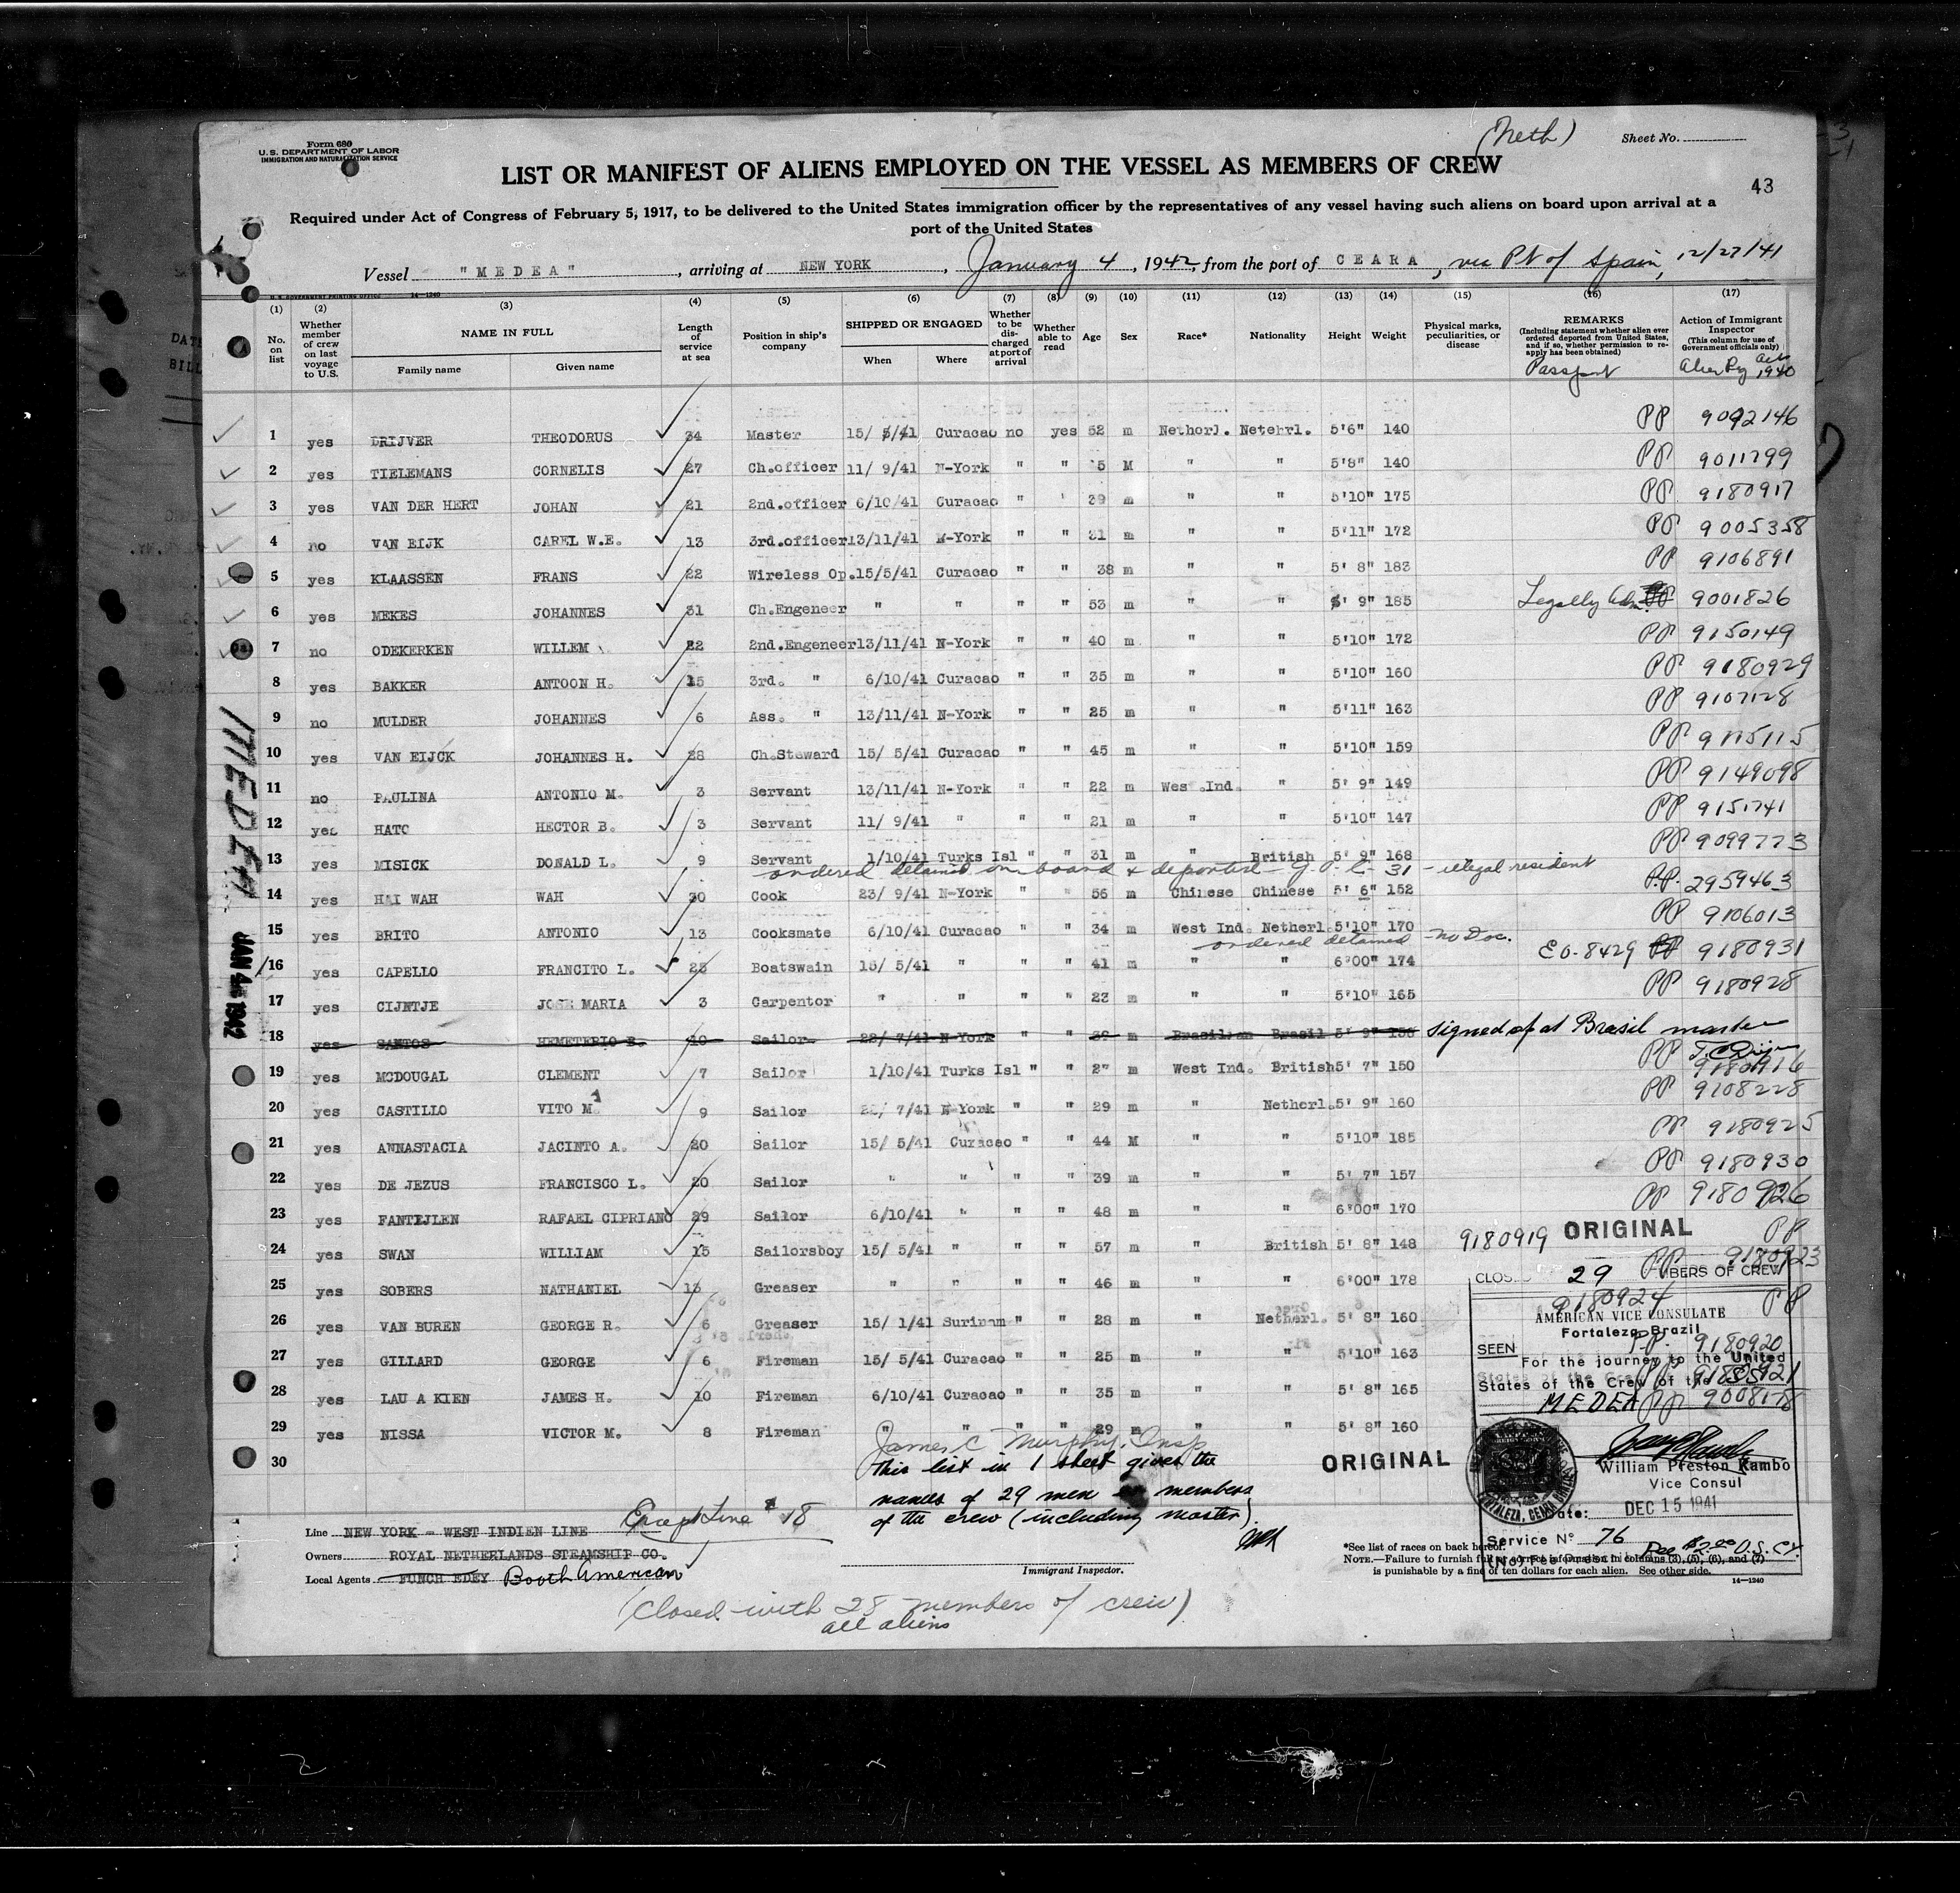 (Neth)
Sheet No.
Form 680
U.S. DEPARTMENT OF LABOR
IMMIGRATION AND NATURALIZATION SERVICE
LIST OR MANIFEST OF ALIENS EMPLOYED ON THE VESSEL AS MEMBERS OF CREW
43
Required under Act of Congress of February 5, 1917, to be delivered to the United States immigration officer by the representatives of any vessel having such aliens on board upon arrival at a
port of the United States
Vessel "MEDEA", arriving at NEW YORK, January 4, 1942, from the port of CEARA, via Pt of Spain, 12/27/41
(1) (2) (3) (4) (5) (6) (7) (8) (9) (10) (11) (12) (13) (14) (15) (16) (17)
No. on list Whether member of crew on last voyage to U.S. NAME IN FULL Family name Given name Length of service at sea Position in ship's company SHIPPED OR ENGAGED When Where Whether to be discharged at port of arrival Whether able to read Age Sex Race* Nationality Height Weight Physical marks, peculiarities, or disease REMARKS (Including statement whether alien ever ordered deported from United States, and if so, whether permission to reapply has been obtained) Passport Action of Immigrant Inspector (This column for use of Government officials only) Alien Reg Act 1940
1 yes DRIJVER THEODORUS 34 Master 15/ 5/41 Curacao no yes 52 m Netherl. Netehrl. 5'6" 140 PP 9092146
2 yes TIELEMANS CORNELIS 27 Ch.officer 11/ 9/41 N-York " " M " " 5'8" 140 PP 9011799
3 yes VAN DER HERT JOHAN 21 2nd.officer 6/10/41 Curacao " ' 39 m " " 5'10" 175 PP 9180917
4 no VAN EIJK CAREL W.E. 13 3rd.officer 13/11/41 N-York " " 31 m " " 5'11" 172 PP 9005358
5 yes KLAASSEN FRANS 22 Wireless Op. 15/5/41 Curacao " " 38 m " " 5' 8" 183 PP 9106891
6 yes MEKES JOHANNES 31 Ch.Engeneer " " " " 53 m " " 5' 9" 185 Legally Adm. PP 9001826
7 no ODEKERKEN WILLEM 22 2nd.Engeneer 13/11/41 N-York " " 40 m " " 5'10" 172 PP 9150149
8 yes BAKKER ANTOON H. 15 3rd. " 6/10/41 Curacao " " 35 m " " 5'10" 160 PP 9180929
9 no MULDER JOHANNES 6 Ass. " 13/11/41 N-York " " 25 m " " 5'11" 163 PP 9107128
10 yes VAN EIJCK JOHANNES H. 28 Ch.Steward 15/ 5/41 Curacao " " 45 m " " 5'10" 159 PP 9115115
11 no PAULINA ANTONIO M. 3 Servant 13/11/41 N-York " " 22 m West.Ind. " 5' 9" 149 PP 9149098
12 yes HATO HECTOR B. 3 Servant 11/ 9/41 " " " 21 m " " 5'10" 147 PP 9151741
13 yes MISICK DONALD L. 9 Servant 1/10/41 Turks Isl " " 31 m " British 5' 9" 168 PP 9099773
ordered detained on board & deported - G.O. C- 31 - illegal resident
14 yes HAI WAH WAH 30 Cook 23/ 9/41 N-York " " 56 m Chinese Chinese 5' 6" 152 P.P. 2959463
15 yes BRITO ANTONIO 13 Cooksmate 6/10/41 Curacao " " 34 m West Ind. Netherl. 5'10" 170 PP 9106013
ordered detained - no Doc.
16 yes CAPELLO FRANCITO L. 25 Boatswain 15/ 5/41 " " " 41 m " " 6'00" 174 EO-8429 PP 9180931
17 yes CIJNTJE JOSE MARIA 3 Carpentor " " " " 23 m " " 5'10" 165 PP 9180928
18 yes SANTOS HEMETERIO B. 10 Sailor 22/ 7/41 N-York " " m Brasilian Brasil 5' 9" signed of at Brasil master
19 yes MCDOUGAL CLEMENT 7 Sailor 1/10/41 Turks Isl " " 27 m West Ind. British 5' 7" 150 PP 9180916
20 yes CASTILLO VITO M. 9 Sailor 22/ 7/41 N-York " " 29 m " Netherl. 5' 9" 160 PP 9108228
21 yes ANNASTACIA JACINTO A. 20 Sailor 15/ 5/41 Curacao " " 44 M " " 5'10" 185 PP 9180925
22 yes DE JEZUS FRANCISCO L. 20 Sailor " " " " 39 m " " 5' 7" 157 PP 9180930
23 yes FANTEJLEN RAFAEL CIPRIANO 29 Sailor 6/10/41 " " " 48 m " " 6'00" 170 PP 9180926
24 yes SWAN WILLIAM 15 Sailorsboy 15/ 5/41 " " " 57 m " British 5' 8" 148 9180919 PP
25 yes SOBERS NATHANIEL 13 Greaser " " " " 46 m " " 6'00" 178 PP 9180923
26 yes VAN BUREN GEORGE R. 6 Greaser 15/ 1/41 Surinam " " 28 m " Netherl. 5' 8" 160 9180924 PP
27 yes GILLARD GEORGE 6 Fireman 15/ 5/41 Curacao " " 25 m " " 5'10" 163 P.P. 9180920
28 yes LAU A KIEN JAMES H. 10 Fireman 6/10/41 Curacao " " 35 m " " 5' 8" 165 PP 9180921
29 yes NISSA VICTOR M. 8 Fireman " " " " 29 m " " 5' 8" 160 PP 9008178
30
ORIGINAL
29 MEMBERS OF CREW
AMERICAN VICE CONSULATE
Fortaleza, Brazil
SEEN
For the journey to the United
States of the Crew of the
MEDEA
William Preston Rambo
Vice Consul
Date: DEC 15 1941
Service Nº 76
Fee $2.00 U.S. Cy.
ORIGINAL
James C Murphy, Insp
This list in 1 sheet gives the
names of 29 men as members
of the crew (including master).
Except Line # 18
Line NEW YORK - WEST INDIEN LINE
Owners ROYAL NETHERLANDS STEAMSHIP CO.
Local Agents FUNCH EDEY Booth American
Immigrant Inspector.
*See list of races on back hereof.
NOTE.—Failure to furnish full or correct information in columns (3), (5), (6), and (7)
is punishable by a fine of ten dollars for each alien. See other side.
14—1240
(Closed with 28 members of crew)
all aliens
MEDEA
JAN 4 1942